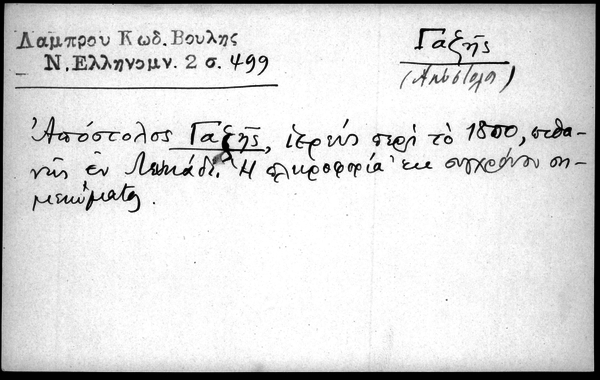 Λάμπρου Κωδ. Βουλης
Ν. Ελληνομν. 2 σ. 499
Γαζῆς
(Απόστολος)
Ἀπόστολος Γαζῆς, ἱερεύς περὶ τὸ 1800, πιθα-
νῶς ἐν Λευκάδι. Ἡ πληροφορία ἐκ συγχρόνου ση-
μειώματος.